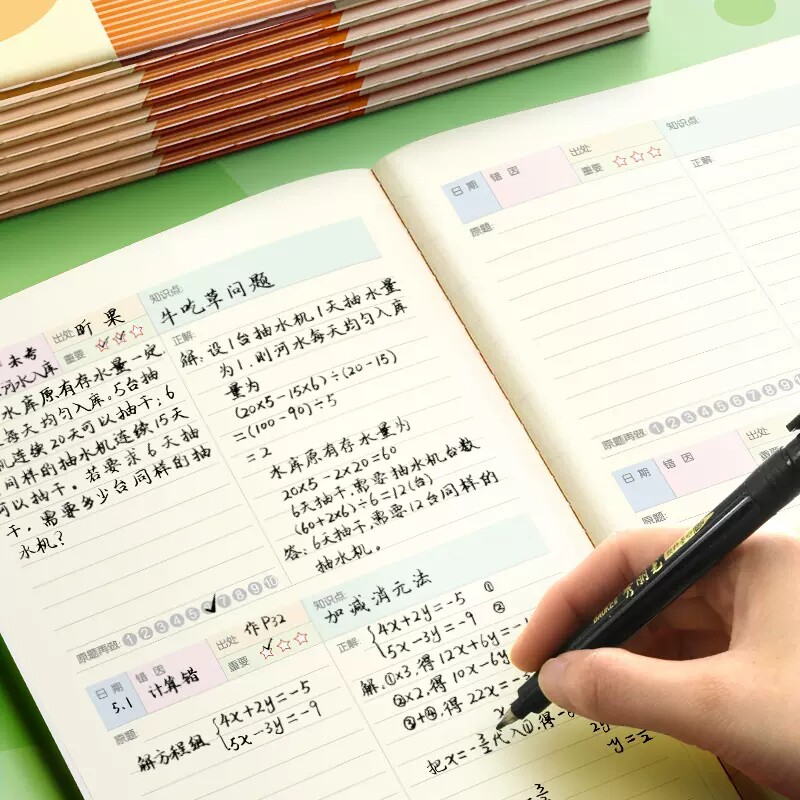 知识点:
牛吃草问题
出处
昕果
重要
未考
河水入库
水库原有存水量一定
每天均匀入库。5台抽
机连续20天可以抽干；6
同样的抽水机连续15天
可以抽干。若要求6天抽
干，需要多少台同样的抽
水机？
原题再做: 1 2 3 4 5 6 7 8 9 10
正解:
解：设1台抽水机1天抽水量
为1，则河水每天均匀入库
量为
(20×5-15×6)÷(20-15)
=(100-90)÷5
=2
水库原有存水量为
20×5-2×20=60
6天抽干，需要抽水机台数
(60+2×6)÷6=12(台)
答：6天抽干，需要12台同样的
抽水机。
日期
5.1
错因
计算错
出处
作P32
重要
知识点:
加减消元法
原题:
解方程组
4x+2y=-5
5x-3y=-9
正解:
4x+2y=-5 ①
5x-3y=-9 ②
解，①×3，得 12x+6y=-1
②×2，得 10x-6y
③+④，得 22x=-3
把x=-3/2代入①，得-6
2y
y=1/2
日期
错因
出处
重要
知识点:
原题:
正解:
原题再做: 1 2 3 4 5 6 7 8 9
日期
错因
出处
重要
原题: